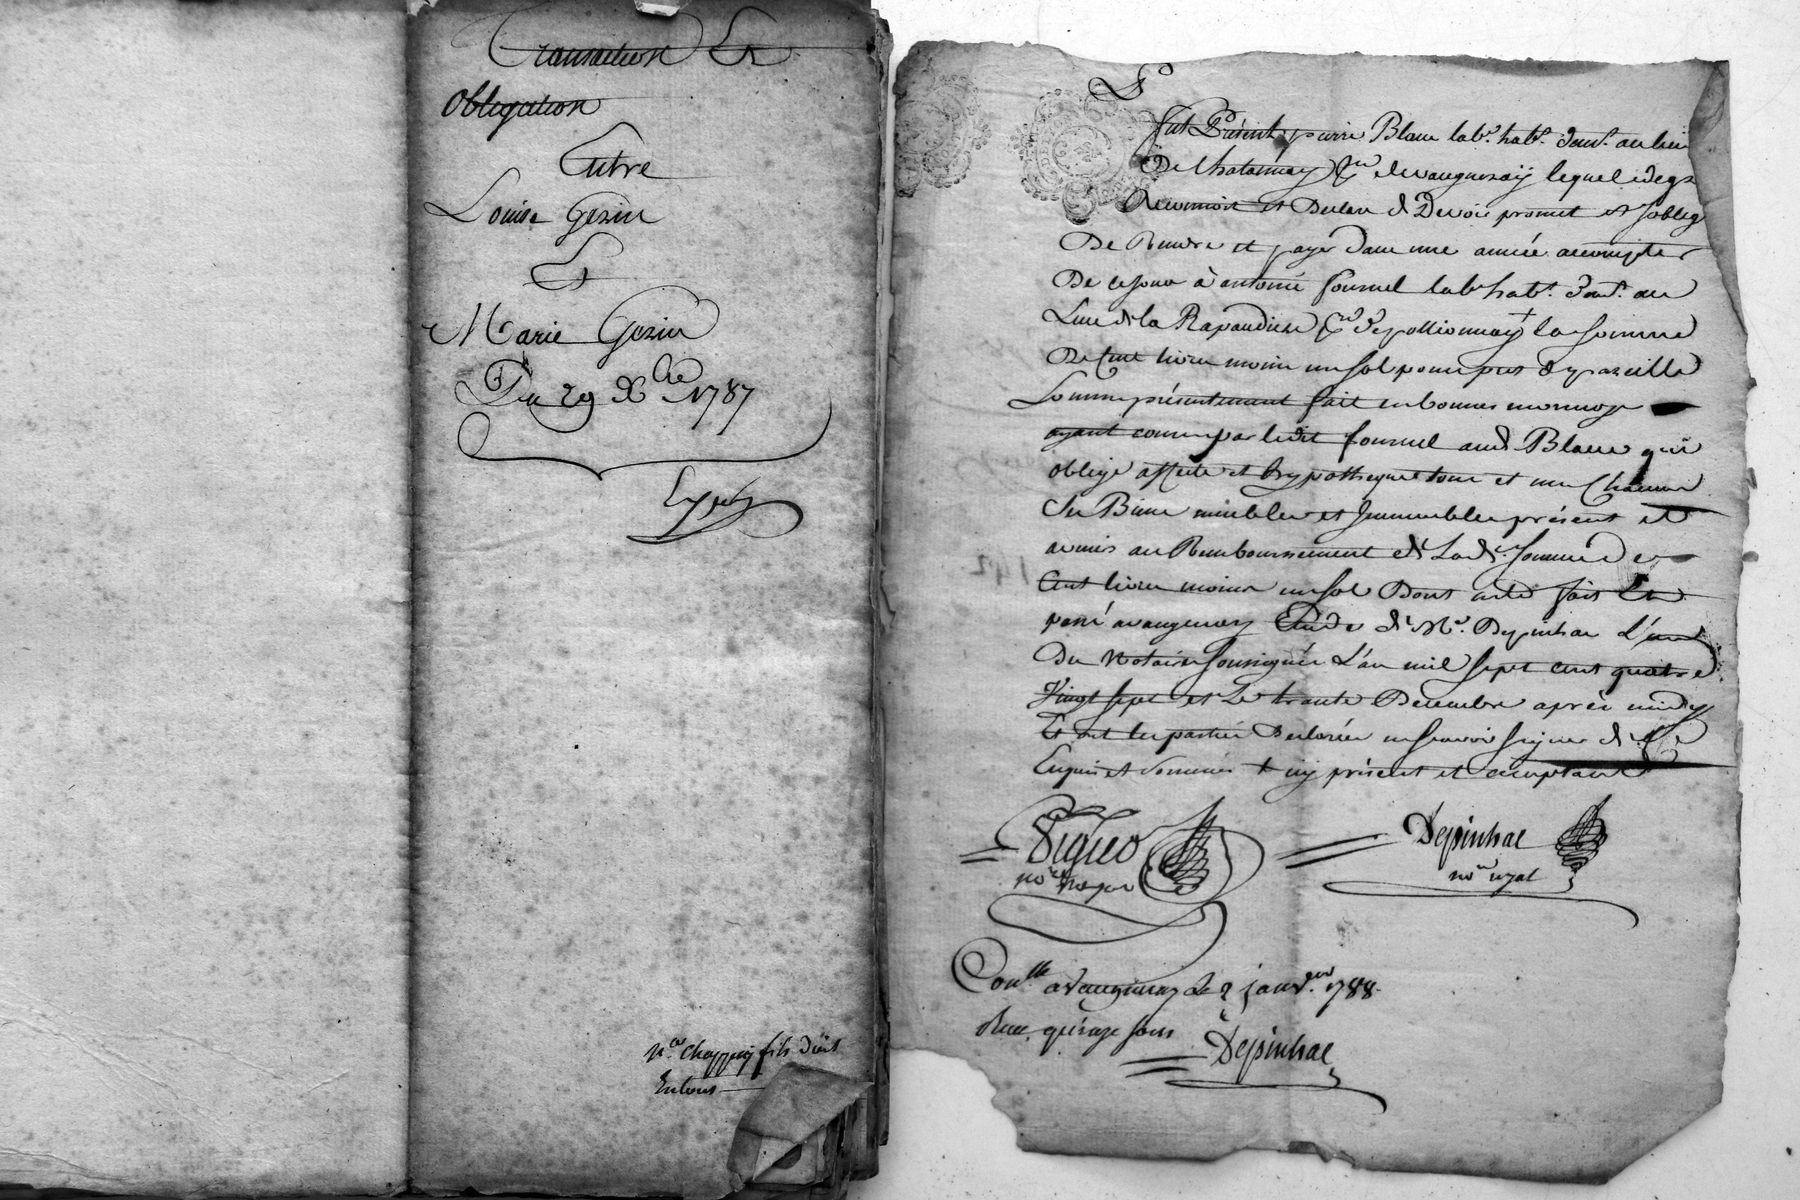 Transaction Et
Obligation
Entre
Louise Gezin
Et
Marie Gezin
Du 29 Xbre 1787
Expéd
Me Chappuy fils doit
Encloux
fut Présent pierre Blanc labr. habt. demt. au lieu
De Chatannay psse de vaugneray lequel de gré
Reconnoit et Declare de Devoir promet et s'oblige
De Rendre et payer dans une année accompter
De ce jour à antoine fournel labr habt. demt. au
Lieu de la Rapaudiere psse de pollionnay + la somme
De Cent livres moins un sol pour prest de pareille
Somme présentement fait en bonnes monnoye
ayant cours par ledit fournel aud. Blanc qui
oblige affecte et hypotheque tous et un Chacun
ses Biens meubles et Immeubles présent et
avenir au Remboursement de Lad. somme de
Cent livres moins un sol Dont acte fait et
passé a vaugneray Etude de Me. Depinhac L'un
Des Notaires soussignés L'an mil sept cent quatre
Vingt sept et Le trante Decembre après midy
Et ont les parties Declarées ne scavoir signer de Ce
Enquis et sommés + icy présent et acceptant
Viguo
nore royal
Depinhac
nore royal
Conllé a Vaugneray le 2 janvier 1788.
Recu quinze sous
Depinhac